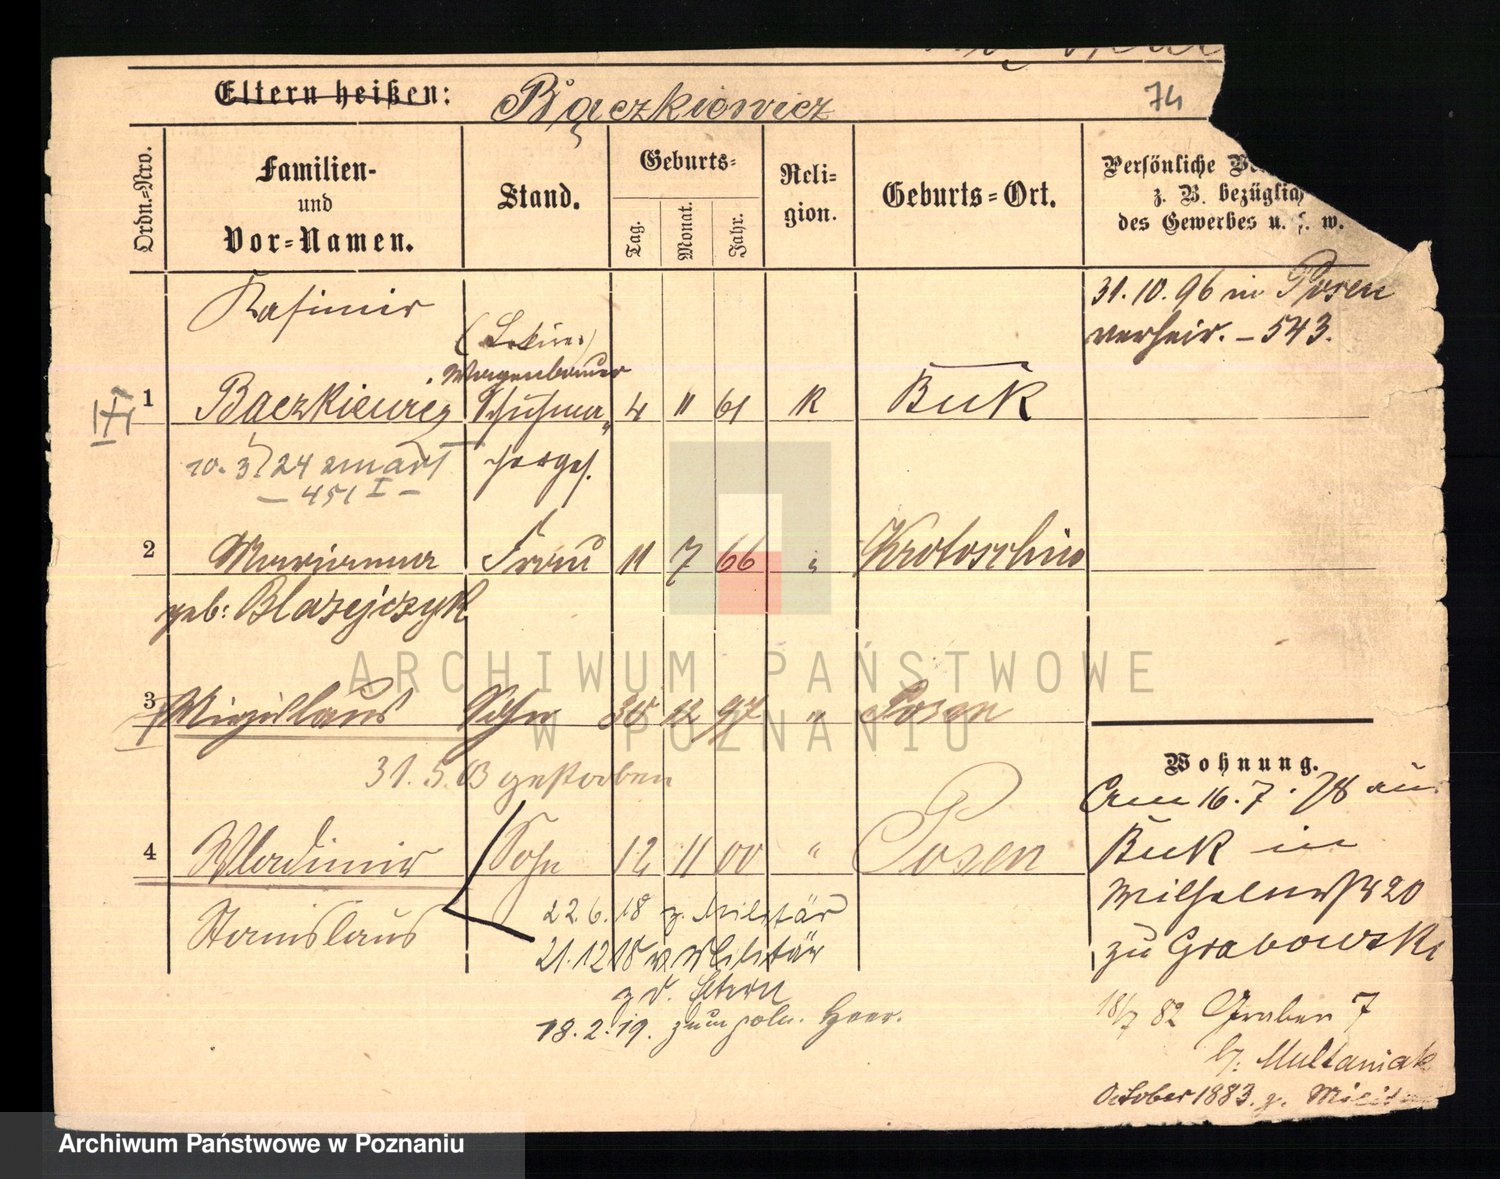 Eltern heißen: Bączkiewicz 74
Ordn.-Nro.
Familien-
und
Vor-Namen.
Stand.
Geburts-
Tag.
Monat.
Jahr.
Reli-
gion.
Geburts-Ort.
Persönliche
z. B. bezüglich
des Gewerbes u. s. w.
Kasimir
31.10.96 in Posen
verheir. – 543.
Wagenbauer
1 Baczkiewicz 4 11 61 K Buk
10. 3. 24
– 451 I –
2 Marianna Frau 11 7 66 " Krotoschin
geb: Blazejczyk
3 Sohn 12 97 " Posen
31.5.03 gestorben
4 Wladimir Sohn 12 11 00 " Posen
Stanislaus
22.6.18 z. Militär
21.12.18 v. Militär
z. d. Eltern
18.2.19. zum poln. Heer.
Wohnung.
Am 16.7.78 aus
Buk in
Wilhelmstr 20
zu Grabowski
18/7 82 Graben 7
b/. Multaniak
October 1883. z.
ARCHIWUM PAŃSTWOWE
W POZNANIU
Archiwum Państwowe w Poznaniu